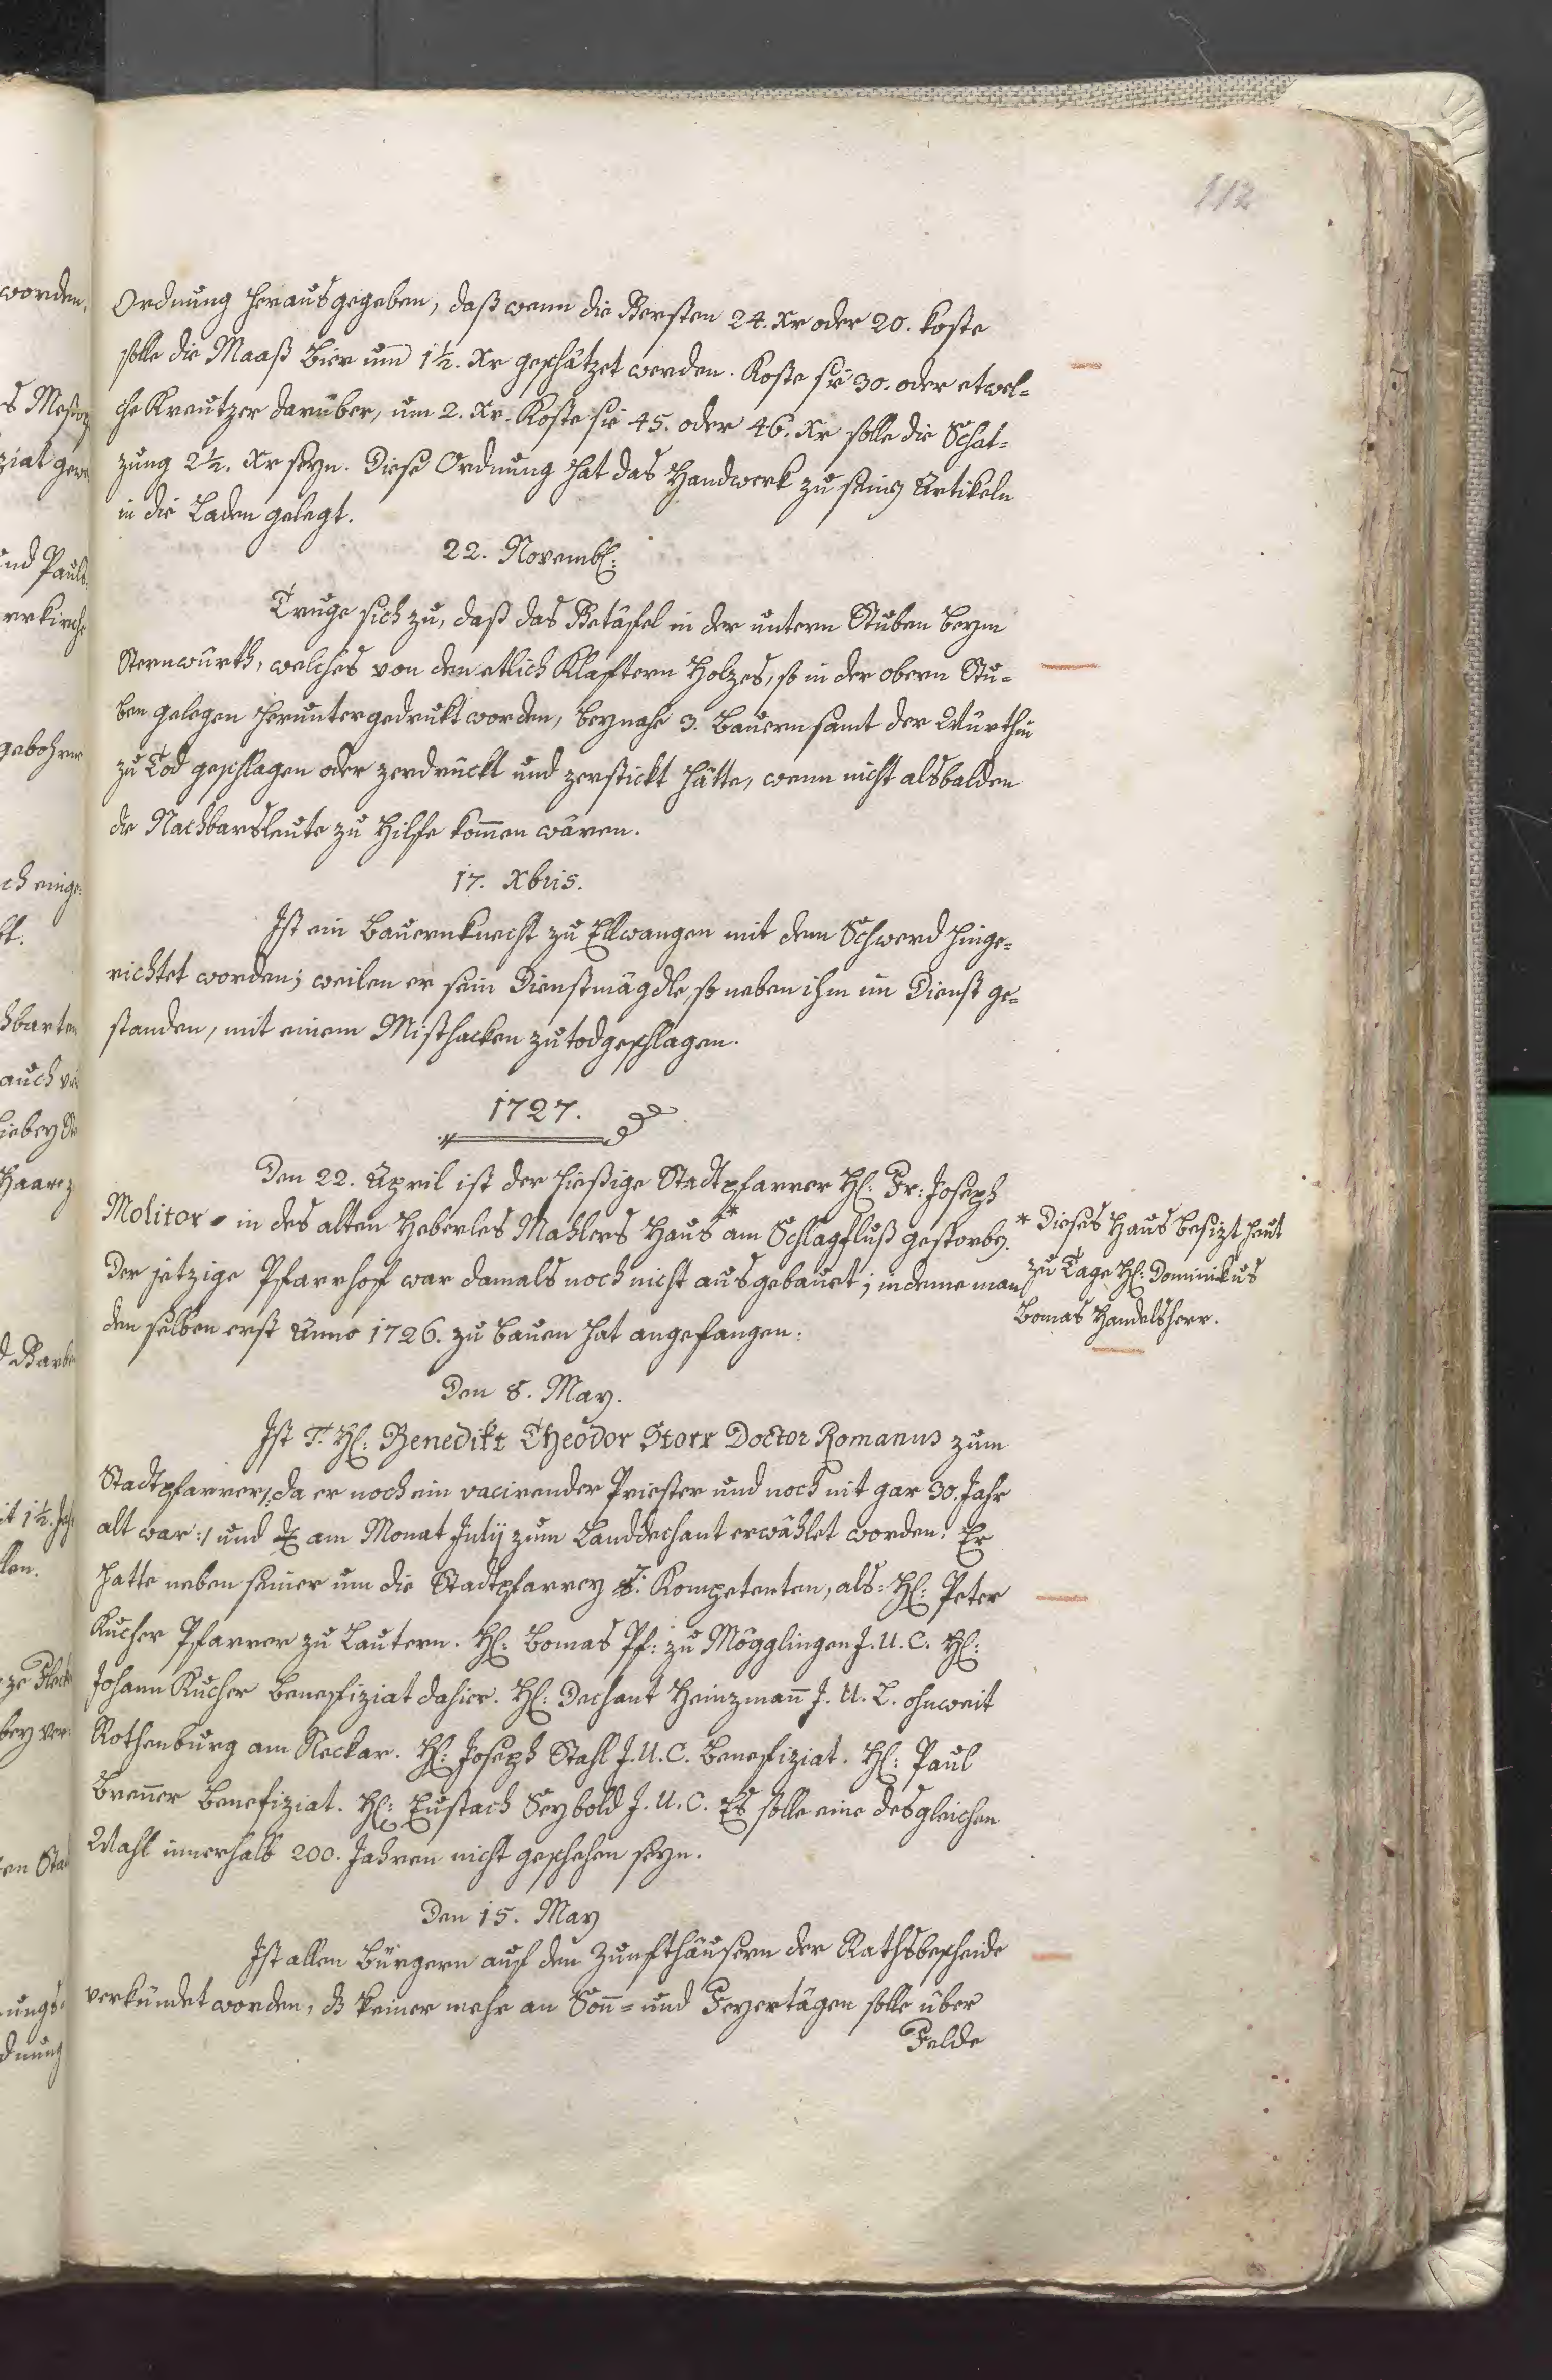 112
Ordnung herausgegeben, daß wenn die Gersten 24. Xr oder 20. koste
solle die Maaß Bier um 1½. Xr geschätzet werden. Koste sie 30. oder etwel=
che Kreutzer darüber, um 2. Xr. Koste sie 45. oder 46. Xr solle die Schat=
zung 2½. Xr seyn. Diese Ordnung hat das Handwerk zu seinen Artikeln
in die Laden gelegt.
22. Novemb:
Truge sich zu, daß das Getäfel in der untern Stuben beym
Sternwürth, welches von den etlich Klaftern Holzes, so in der obern Stu=
ben gelegen heruntergedrukt worden, beynahe 3. Bauern samt der Würthin
zu Tod geschlagen oder zerdrückt und zerstickt hätte, wenn nicht alsbalden
die Nachbarsleute zu Hilfe kommen wären.
17. Xbris.
Ist ein Bauernknecht zu Ellwangen mit dem Schwerd hinge=
richtet worden; weilen er sein Dienstmägdle, so neben ihm im Dienst ge=
standen, mit einem Misthacken zu todgeschlagen.
1727.
Den 22. April ist der hießige Stadtpfarrer H: Fr: Joseph
Molitor in des alten Heberles Mahlers Haus* am Schlagfluß gestorben.
Der jetzige Pfarrhof war damals noch nicht ausgebauet; indeme man
den selben erst Anno 1726. zu bauen hat angefangen.
* Dieses Haus besizt heut
zu Tage H: Dominikus
Bomas Handelsherr.
Den 8. May.
Ist T. H: Benedikt Theodor Storr Doctor Romanus zum
Stadtpfarrer /: da er noch ein vacirender Priester und noch nit gar 30. Jahr
alt war :/ und am Monat Julij zum Landdechant erwählet worden. Er
hatte neben seiner um die Stadtpfarrey Kompetenten, als: H: Peter
Kucher Pfarrer zu Lautern. H: Bomas Pf: zu Mögglingen J. U. C. H:
Johann Kucher Benefiziat dahier. H: Dechant Heinzmann J. U. L. ohnweit
Rothenburg am Neckar. H: Joseph Stahl J. U. C. Benefiziat. H: Paul
Brenner Benefiziat. H: Eustach Seybold J. U. C. Es solle eine desgleichen
Wahl innerhalb 200. Jahren nicht geschehen seyn.
Den 15. May
Ist allen Bürgern auf den Zunfthäusern der Rathsbescheide
verkündet worden, dß keiner mehr an Sonn= und Feyertägen solle über
Felde